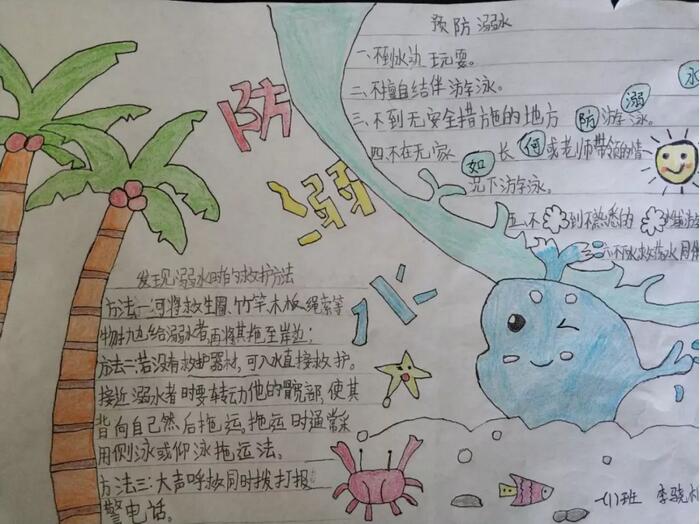 预防溺水
一、不到水边玩耍。
二、不擅自结伴游泳。
三、不到无安全措施的地方游泳。
四、不在无家长或老师带领的情
况下游泳。
五、不到不熟悉的
六、不下水救落水同
如何防溺水
防溺水
发现溺水时的救护方法
方法一:可将救生圈、竹竿、木板、绳索等
物抛给溺水者,再将其拖至岸边;
方法二:若没有救护器材,可入水直接救护。
接近溺水者时要转动他的髋部,使其
背向自己然后拖运。拖运时通常采
用侧泳或仰泳拖运法。
方法三:大声呼救同时拨打报
警电话。
(1)班 李骁